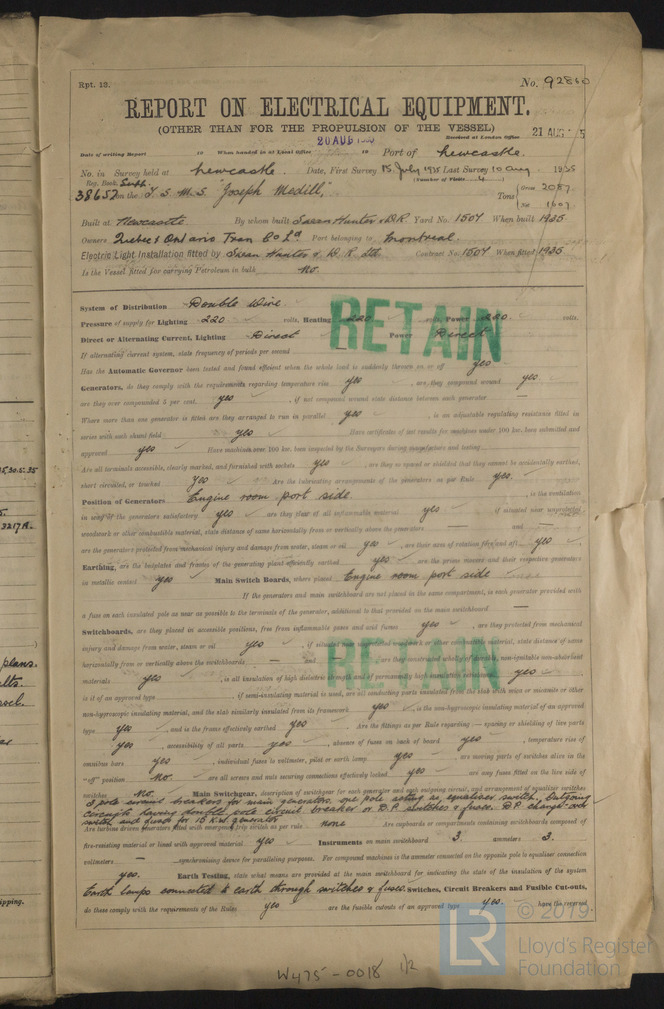 Rpt. 13.
No. 92860
REPORT ON ELECTRICAL EQUIPMENT.
(OTHER THAN FOR THE PROPULSION OF THE VESSEL)
20 AUG
Received at London Office 21 AUG
Date of writing Report 19 When handed in at Local Office 19 Port of Newcastle.
No. in Survey held at Newcastle. Date, First Survey 15 July 1935 Last Survey 10 Aug 1935
Reg. Book. Supp. (Number of Visits 4)
38652 on the T. S. M. S. "Joseph Medill" Tons Gross 2087 Net 1607
Built at Newcastle By whom built Swan Hunter & W R Yard No. 1507 When built 1935
Owners Quebec & Ontario Tran Co Ld Port belonging to Montreal.
Electric Light Installation fitted by Swan Hunter & W. R Ltd. Contract No. 1507 When fitted 1935
Is the Vessel fitted for carrying Petroleum in bulk No.
RETAIN
System of Distribution Double Wire.
Pressure of supply for Lighting 220 volts, Heating 220 volts, Power 220 volts.
Direct or Alternating Current, Lighting Direct Power Direct
If alternating current system, state frequency of periods per second
Has the Automatic Governor been tested and found efficient when the whole load is suddenly thrown on or off yes
Generators, do they comply with the requirements regarding temperature rise yes, are they compound wound yes
are they over compounded 5 per cent. yes, if not compound wound state distance between each generator —
Where more than one generator is fitted are they arranged to run in parallel yes, is an adjustable regulating resistance fitted in
series with each shunt field yes Have certificates of test results for machines under 100 kw. been submitted and
approved yes Have machines over 100 kw. been inspected by the Surveyors during manufacture and testing
Are all terminals accessible, clearly marked, and furnished with sockets yes, are they so spaced or shielded that they cannot be accidentally earthed,
short circuited, or touched yes Are the lubricating arrangements of the generators as per Rule yes.
Position of Generators Engine room port side, is the ventilation
in way of the generators satisfactory yes are they clear of all inflammable material yes, if situated near unprotected
woodwork or other combustible material, state distance of same horizontally from or vertically above the generators — and —
are the generators protected from mechanical injury and damage from water, steam or oil yes, are their axes of rotation fore and aft yes
Earthing, are the bedplates and frames of the generating plant efficiently earthed yes are the prime movers and their respective generators
in metallic contact yes Main Switch Boards, where placed Engine room port side
If the generators and main switchboard are not placed in the same compartment, is each generator provided with
a fuse on each insulated pole as near as possible to the terminals of the generator, additional to that provided on the main switchboard —
Switchboards, are they placed in accessible positions, free from inflammable gases and acid fumes yes, are they protected from mechanical
injury and damage from water, steam or oil yes, if situated near unprotected woodwork or other combustible material, state distance of same
RETAIN
horizontally from or vertically above the switchboards — and —, are they constructed wholly of durable, non-ignitable non-absorbent
materials yes, is all insulation of high dielectric strength and of permanently high insulation resistance yes
is it of an approved type —, if semi-insulating material is used, are all conducting parts insulated from the slab with mica or micanite or other
non-hygroscopic insulating material, and the slab similarly insulated from its framework yes, is the non-hygroscopic insulating material of an approved
type yes, and is the frame effectively earthed yes Are the fittings as per Rule regarding:— spacing or shielding of live parts
yes, accessibility of all parts yes, absence of fuses on back of board yes, temperature rise of
omnibus bars yes, individual fuses to voltmeter, pilot or earth lamp yes, are moving parts of switches alive in the
"off" position No. are all screws and nuts securing connections effectively locked yes are any fuses fitted on the live side of
switches No. Main Switchgear, description of switchgear for each generator and each outgoing circuit, and arrangement of equaliser switches
3 pole circuit breakers for main generators, one pole acting as equaliser switch. Outgoing
circuits having double pole circuit breaker or D.P. switches & fuses. D.P. change over
switch and fuses for 15 K.W. generator
Are turbine driven generators fitted with emergency trip switch as per rule none Are cupboards or compartments containing switchboards composed of
fire-resisting material or lined with approved material yes Instruments on main switchboard 3 ammeters 3.
voltmeters — synchronising device for paralleling purposes. For compound machines is the ammeter connected on the opposite pole to equaliser connection
yes. Earth Testing, state what means are provided at the main switchboard for indicating the state of the insulation of the system
Earth lamps connected to earth through switches & fuses. Switches, Circuit Breakers and Fusible Cut-outs,
do these comply with the requirements of the Rules yes are the fusible cutouts of an approved type yes. have the reversed
W475-0018 1/2
© 2019
LR
Lloyd's Register
Foundation
plans.
3217 A.